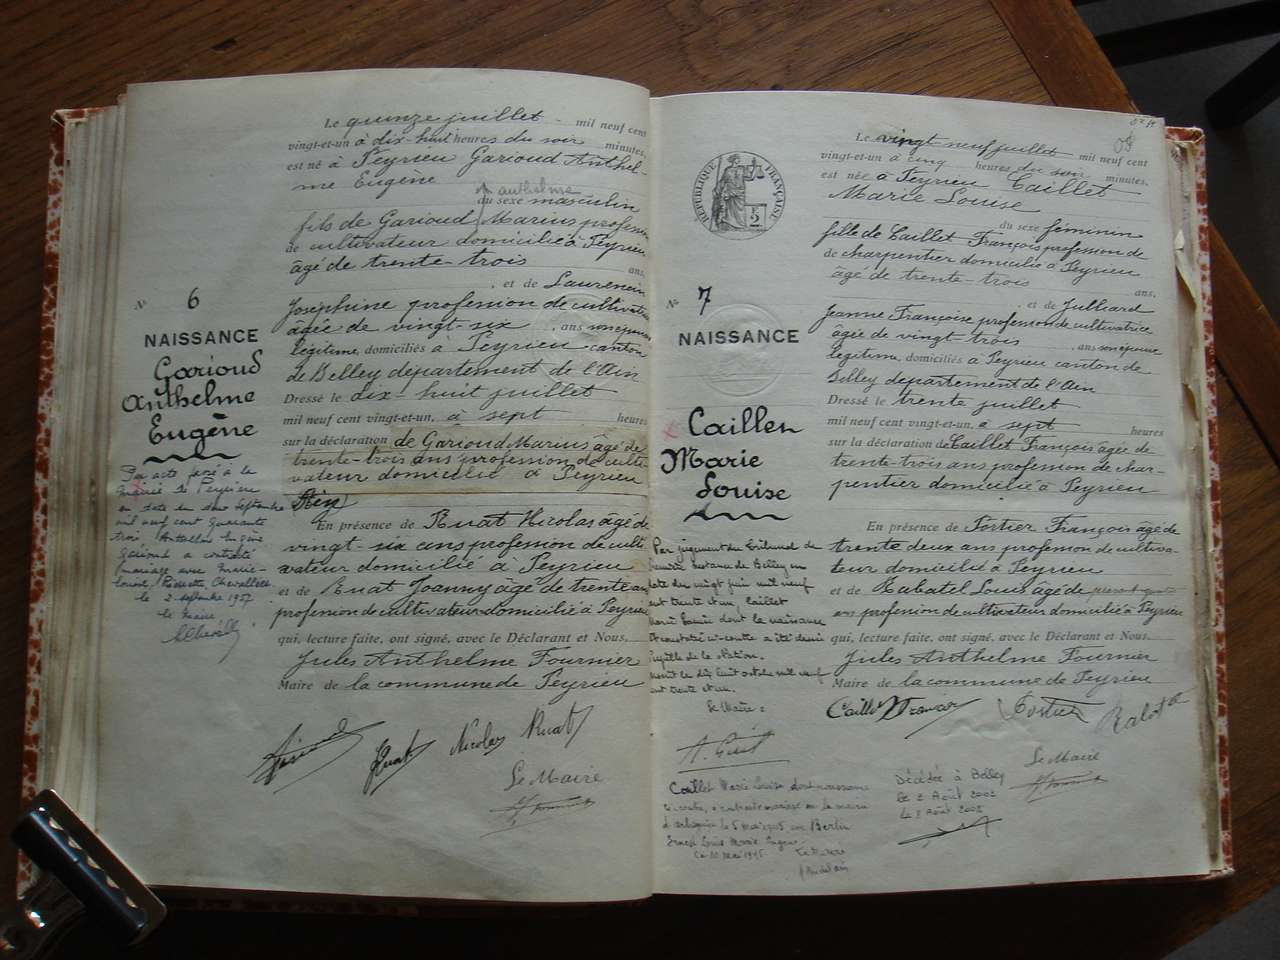 Le quinze juillet mil neuf cent
vingt-et-un à dix-huit heures du soir minutes,
est né à Peyrieu Garioud Anthel-
me Eugène
anthelme
du sexe masculin
fils de Garioud Marius profession
de cultivateur domicilié à Peyrieu
âgé de trente-trois ans,
, et de Laurencin
Joséphine profession de cultivatrice
âgée de vingt-six , ans son épouse
légitime, domiciliés à Peyrieu canton
de Belley département de l'Ain
Dressé le dix-huit juillet
mil neuf cent vingt-et-un, à sept heures
sur la déclaration de Garioud Marius âgé de
trente-trois ans profession de culti-
vateur domicilié à Peyrieu
Ain
En présence de Ruat Nicolas âgé de
vingt-six ans profession de culti-
vateur domicilié à Peyrieu
et de Ruat Joanny âge de trente ans
profession de cultivateur domicilié à Peyrieu
qui, lecture faite, ont signé, avec le Déclarant et Nous,
Jules Anthelme Fournier
Maire de la commune de Peyrieu
Ruat Nicolas Ruat
Le Maire
N° 6
NAISSANCE
Garioud
Anthelme
Eugène
Par acte passé à la
mairie de Peyrieu
en date du deux Septembre
mil neuf cent quarante
trois Anthelme Eugène
Garioud a contracté
mariage avec Marie-
Louise, Pierrette Chevallier
le 2 septembre 1957
le Maire
RÉPUBLIQUE FRANÇAISE
Le vingt neuf juillet mil neuf cent
vingt-et-un à cinq heures du soir minutes,
est née à Peyrieu Caillet
Marie Louise
du sexe féminin
fille de Caillet François profession de
de charpentier domicilié à Peyrieu
âgé de trente-trois ans,
, et de Julliard
Jeanne Françoise profession de cultivatrice
âgée de vingt-trois , ans son épouse
légitime, domiciliés à Peyrieu canton de
Belley département de l'Ain
Dressé le trente juillet
mil neuf cent vingt-et-un, à sept heures
sur la déclaration de Caillet François âgé de
trente-trois ans profession de char-
pentier domicilié à Peyrieu
En présence de Portier François âgé de
trente deux ans profession de cultiva-
teur domicilié à Peyrieu
et de Rabatel Louis âgé de
ans profession de cultivateur domicilié à Peyrieu
qui, lecture faite, ont signé, avec le Déclarant et Nous,
Jules Anthelme Fournier
Maire de la commune de Peyrieu
Caillet François Portier
Le Maire
N° 7
NAISSANCE
Caillet
Marie
Louise
Par jugement du Tribunal de
première instance de Belley en
date du vingt juin mil neuf
cent trente et un, Caillet
Marie Louise dont la naissance
est constatée ci-contre a été déclarée
pupille de la Nation.
le dix huit octobre mil neuf
cent trente et un.
Le Maire :
Caillet Marie Louise dont naissance
ci contre, a contracté mariage en la mairie
le 5 mai 1945 avec Berlin
Ernest Louis Marie Eugène
Le 10 Mai 1945 Le Maire
Décédée à Belley
le 2 Août 2002
le 8 Août 2002